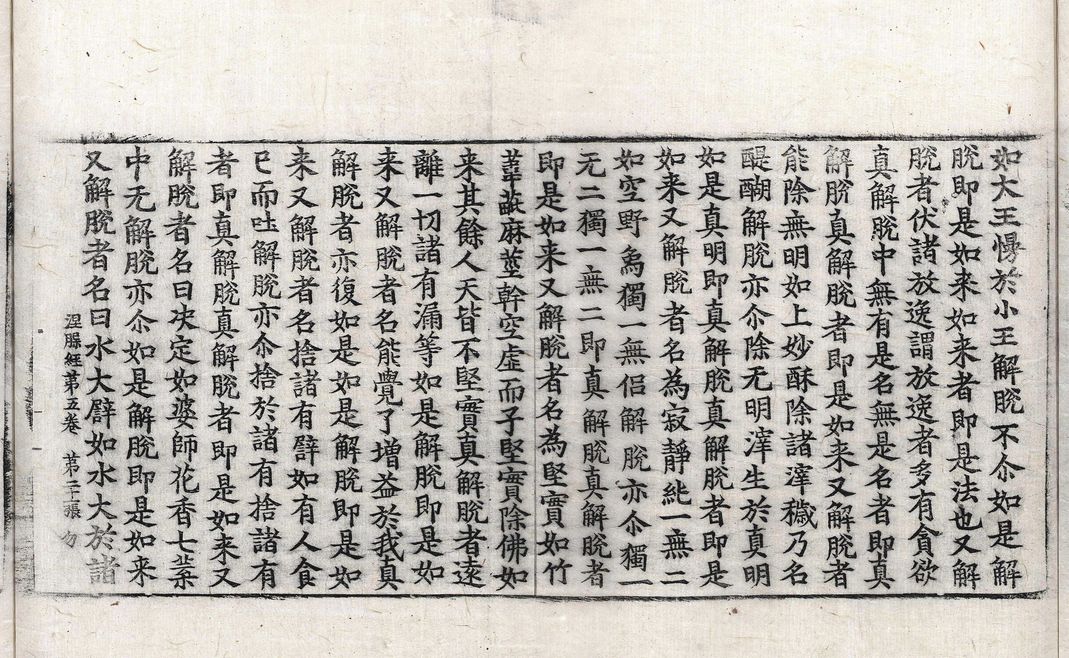 如大王慢於小王解脫不尒如是解
脫即是如来如来者即是法也又解
脫者伏諸放逸謂放逸者多有貪欲
真解脫中無有是名無是名者即真
解脫真解脫者即是如来又解脫者
能除無明如上妙酥除諸滓穢乃名
醍醐解脫亦尒除无明滓生於真明
如是真明即真解脫真解脫者即是
如来又解脫者名為寂靜純一無二
如空野象獨一無侣解脫亦尒獨一
无二獨一無二即真解脫真解脫者
即是如来又解脫者名為堅實如竹
葦蓖麻莖幹空虛而子堅實除佛如
来其餘人天皆不堅實真解脫者遠
離一切諸有漏等如是解脫即是如
来又解脫者名能覺了增益於我真
解脫者亦復如是如是解脫即是如
来又解脫者名捨諸有譬如有人食
已而吐解脫亦尒捨於諸有捨諸有
者即真解脫真解脫者即是如来又
解脫者名曰决定如婆師花香七葉
中无解脫亦尒如是解脫即是如来
又解脫者名曰水大譬如水大於諸
涅槃經第五卷 第二十張 勿